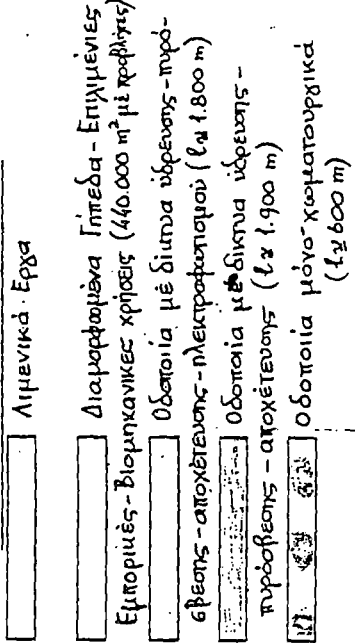 Λιμενικά Έργα
Διαμορφωμένα Γήπεδα - Επιχ/μένες
Εμπορικές - Βιομηχανικές χρήσεις (440.000 m² μέ προβλήτες)
Οδοποιία μέ δίκτυα ύδρευσης - πυρό-
σβεσης - αποχέτευσης - ηλεκτροφωτισμού (l≈ 1.800 m)
Οδοποιία μέ δίκτυα ύδρευσης -
πυρόσβεσης - αποχέτευσης (l≈ 1.900 m)
Οδοποιία μόνο χωματουργικά
(l≈ 600 m)